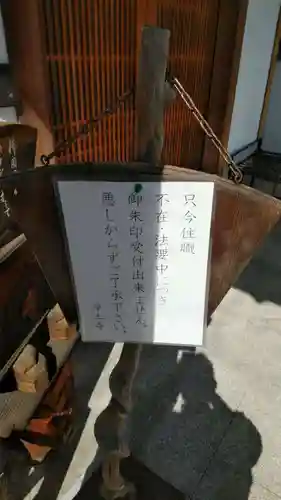 只今住職
不在・法要中につき
御朱印受付出来ません。
悪しからずご了承下さい。